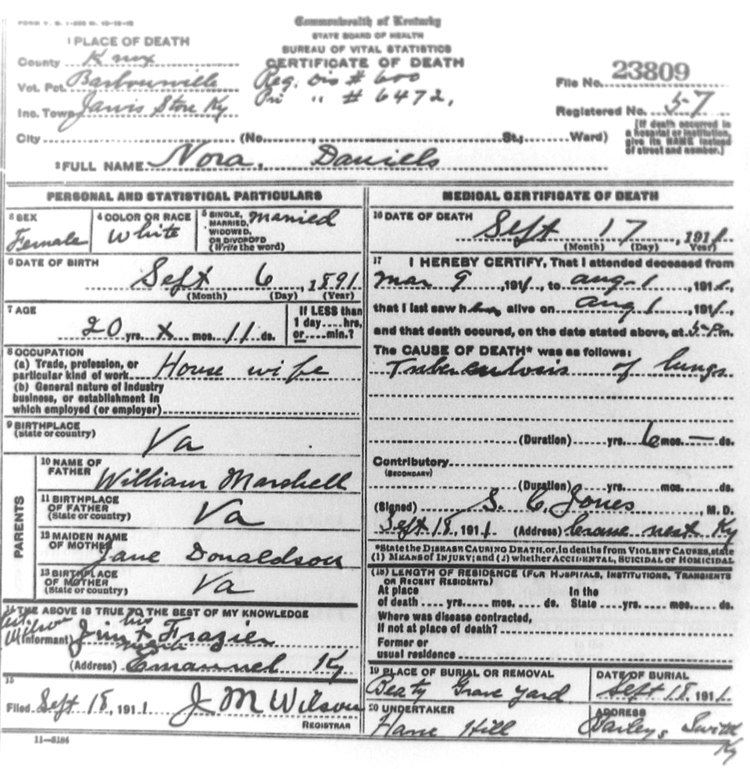 FORM V. S. 1-
Commonwealth of Kentucky
STATE BOARD OF HEALTH
BUREAU OF VITAL STATISTICS
CERTIFICATE OF DEATH
1 PLACE OF DEATH
County Knox
Vot. Pct. Barbourville
Reg. Dis # 600
Pri " # 6472,
Inc. Town Jarvis Store Ky
File No. 23809
Registered No. 57
City (No. St.; Ward)
[If death occurred in a hospital or institution, give its NAME instead of street and number.]
2 FULL NAME Nora, Daniels
PERSONAL AND STATISTICAL PARTICULARS
3 SEX Female
4 COLOR OR RACE White
5 SINGLE, MARRIED, WIDOWED, OR DIVORCED (Write the word) Married
6 DATE OF BIRTH
Sept 6, 1891
(Month) (Day) (Year)
7 AGE
20 yrs. x mos. 11 ds.
If LESS than 1 day.... hrs, or.... min.?
8 OCCUPATION
(a) Trade, profession, or particular kind of work House wife
(b) General nature of industry business, or establishment in which employed (or employer)
9 BIRTHPLACE (State or country) Va
PARENTS
10 NAME OF FATHER William Marshell
11 BIRTHPLACE OF FATHER (State or country) Va
12 MAIDEN NAME OF MOTHER Jane Donaldson
13 BIRTHPLACE OF MOTHER (State or country) Va
14 THE ABOVE IS TRUE TO THE BEST OF MY KNOWLEDGE
Wilson
(Informant) Jim his x mark Frazier
(Address) Emanuel Ky
15
Filed Sept 18, 1911 J M Wilson
REGISTRAR
11-5184
MEDICAL CERTIFICATE OF DEATH
16 DATE OF DEATH
Sept 17, 1911
(Month) (Day) (Year)
17 I HEREBY CERTIFY, That I attended deceased from
Mar 9, 1911, to Aug-1, 1911,
that I last saw her alive on Aug 1, 1911,
and that death occured, on the date stated above, at 5-Pm.
The CAUSE OF DEATH* was as follows:
Tuberculosis of lungs
(Duration) yrs. 6 mos. — ds.
Contributory
(SECONDARY)
(Duration) yrs. mos. ds.
(Signed) S. C. Jones, M. D.
Sept 18, 1911 (Address) Crane nest Ky
*State the DISEASE CAUSING DEATH, or, in deaths from VIOLENT CAUSES, state
(1) MEANS OF INJURY; and (2) whether ACCIDENTAL, SUICIDAL OR HOMICIDAL
(18) LENGTH OF RESIDENCE (FOR HOSPITALS, INSTITUTIONS, TRANSIENTS OR RECENT RESIDENTS)
At place of death yrs. mos. ds. In the State yrs. mos. ds.
Where was disease contracted, If not at place of death?
Former or usual residence
19 PLACE OF BURIAL OR REMOVAL
Beaty Grave yard
DATE OF BURIAL
Sept 18, 1911
20 UNDERTAKER
Hill
ADDRESS
Ky